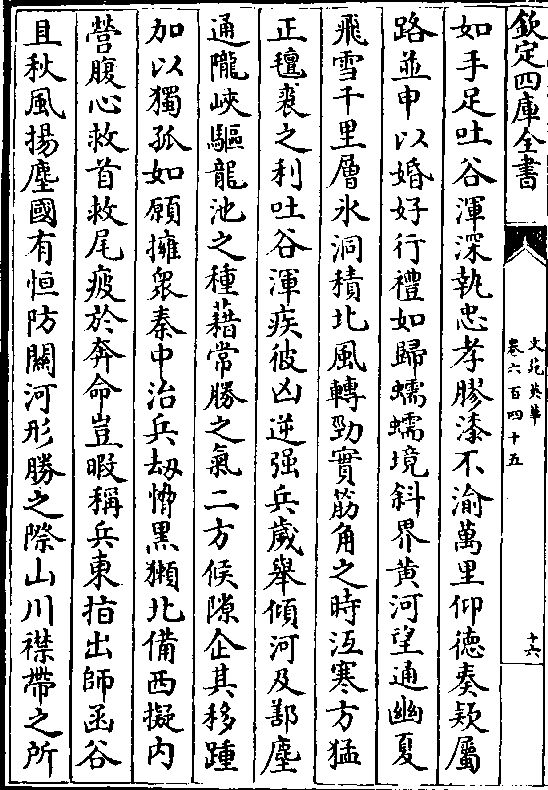 欽定四庫全書
文苑英華
卷六百四十五
十六
如手足吐谷渾深執忠孝膠漆不渝萬里仰徳奏欵屬
路並申以婚好行禮如歸蠕蠕境斜界黄河望通幽夏
飛雪千里層氷洞積北風轉勁實筋角之時沍寒方猛
正氊裘之利吐谷渾疾彼凶逆强兵嵗舉傾河及鄯塵
通隴峽驅龍池之種藉常勝之氣二方候隙企其移踵
加以獨孤如願擁衆秦中治兵刼脅黑獺北備西擬内
營腹心救首救尾疲於奔命豈暇稱兵東指出師函谷
且秋風揚塵國有恒防關河形勝之際山川襟帶之所